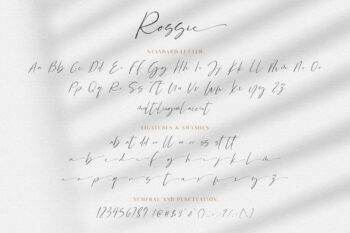 Rossie
STANDARD LETTER
Aa Bb Cc Dd Ee Ff Gg Hh Ii Jj Kk Ll Mm Nn Oo
Pp Qq Rr Ss Tt Uu Vv Ww Xx Yy Zz
multilingual accent
LIGATURES & SWASHES
ab at dd ll
a b c d e f g h i j k l m n
o p q r s t u v w x y z
NUMERAL AND PUNCTUATION
123456789